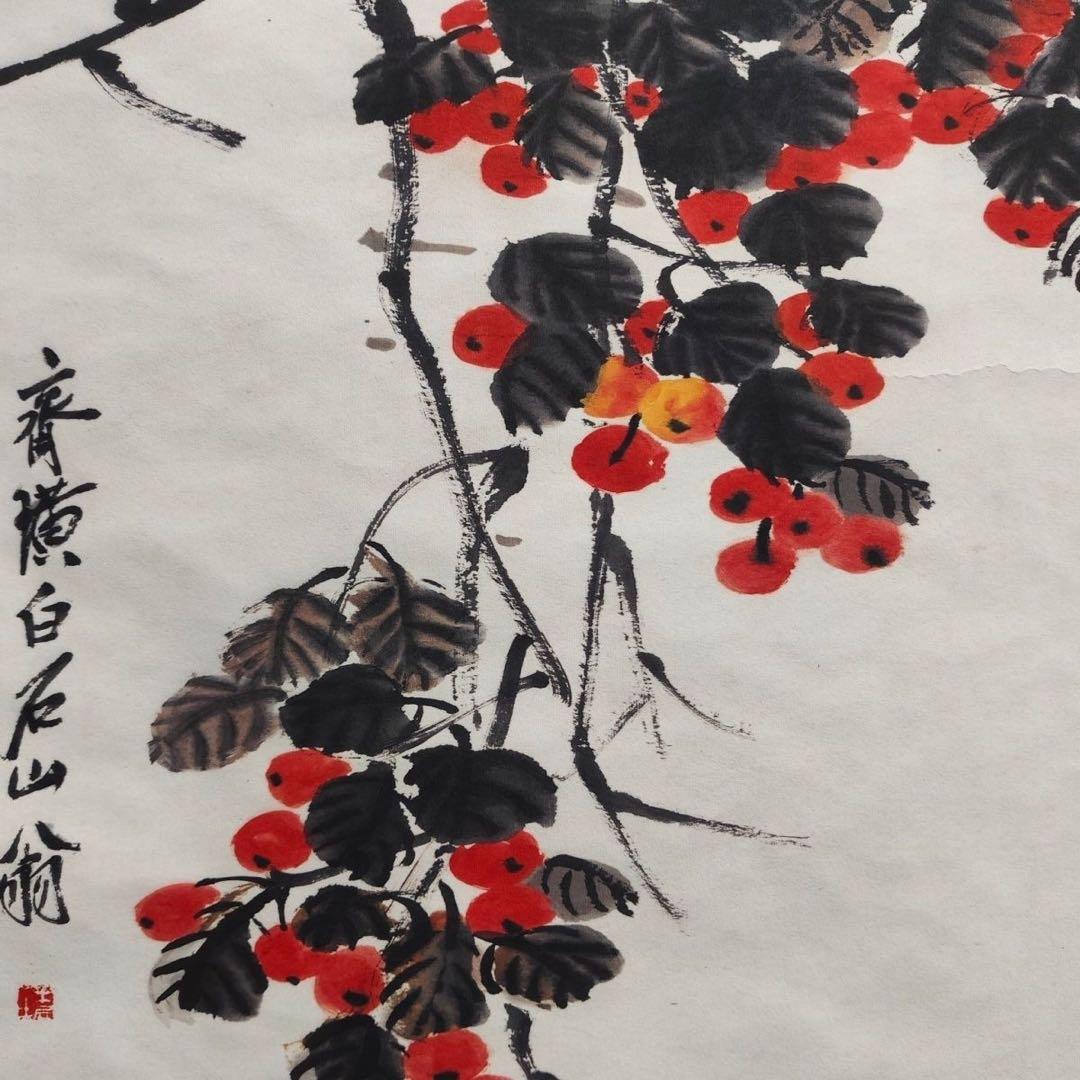 齐璜白石山翁